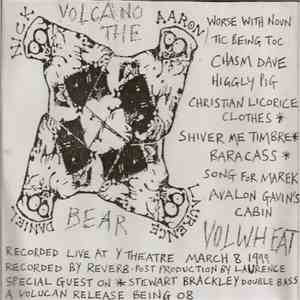 VOLCANO
THE
BEAR
NICK
AARON
DANIEL
LAURENCE
WORSE WITH NOUN
TIC BEING TOC
CHASM DAVE
HIGGLY PIG
CHRISTIAN LICORICE
CLOTHES *
SHIVER ME TIMBRE *
BARACASS *
SONG FOR MAREK
AVALON GAVIN'S
CABIN
VOLWHEAT
RECORDED LIVE AT Y THEATRE MARCH 8 1999
RECORDED BY REVERB. POST PRODUCTION BY LAURENCE
SPECIAL GUEST ON * STEWART BRACKLEY DOUBLE BASS
A VOLUCAN RELEASE BEING 08